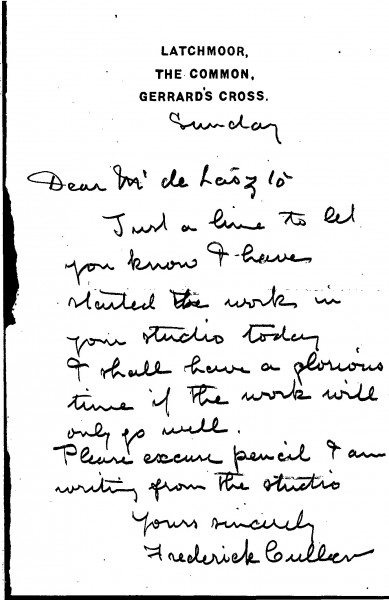 LATCHMOOR,
THE COMMON,
GERRARD'S CROSS.
Sunday
Dear Mr de László
Just a line to let
you know I have
started the work in
your studio today
I shall have a glorious
time if the work will
only go well.
Please excuse pencil I am
writing from the studio
Yours sincerely
Frederick Cullen